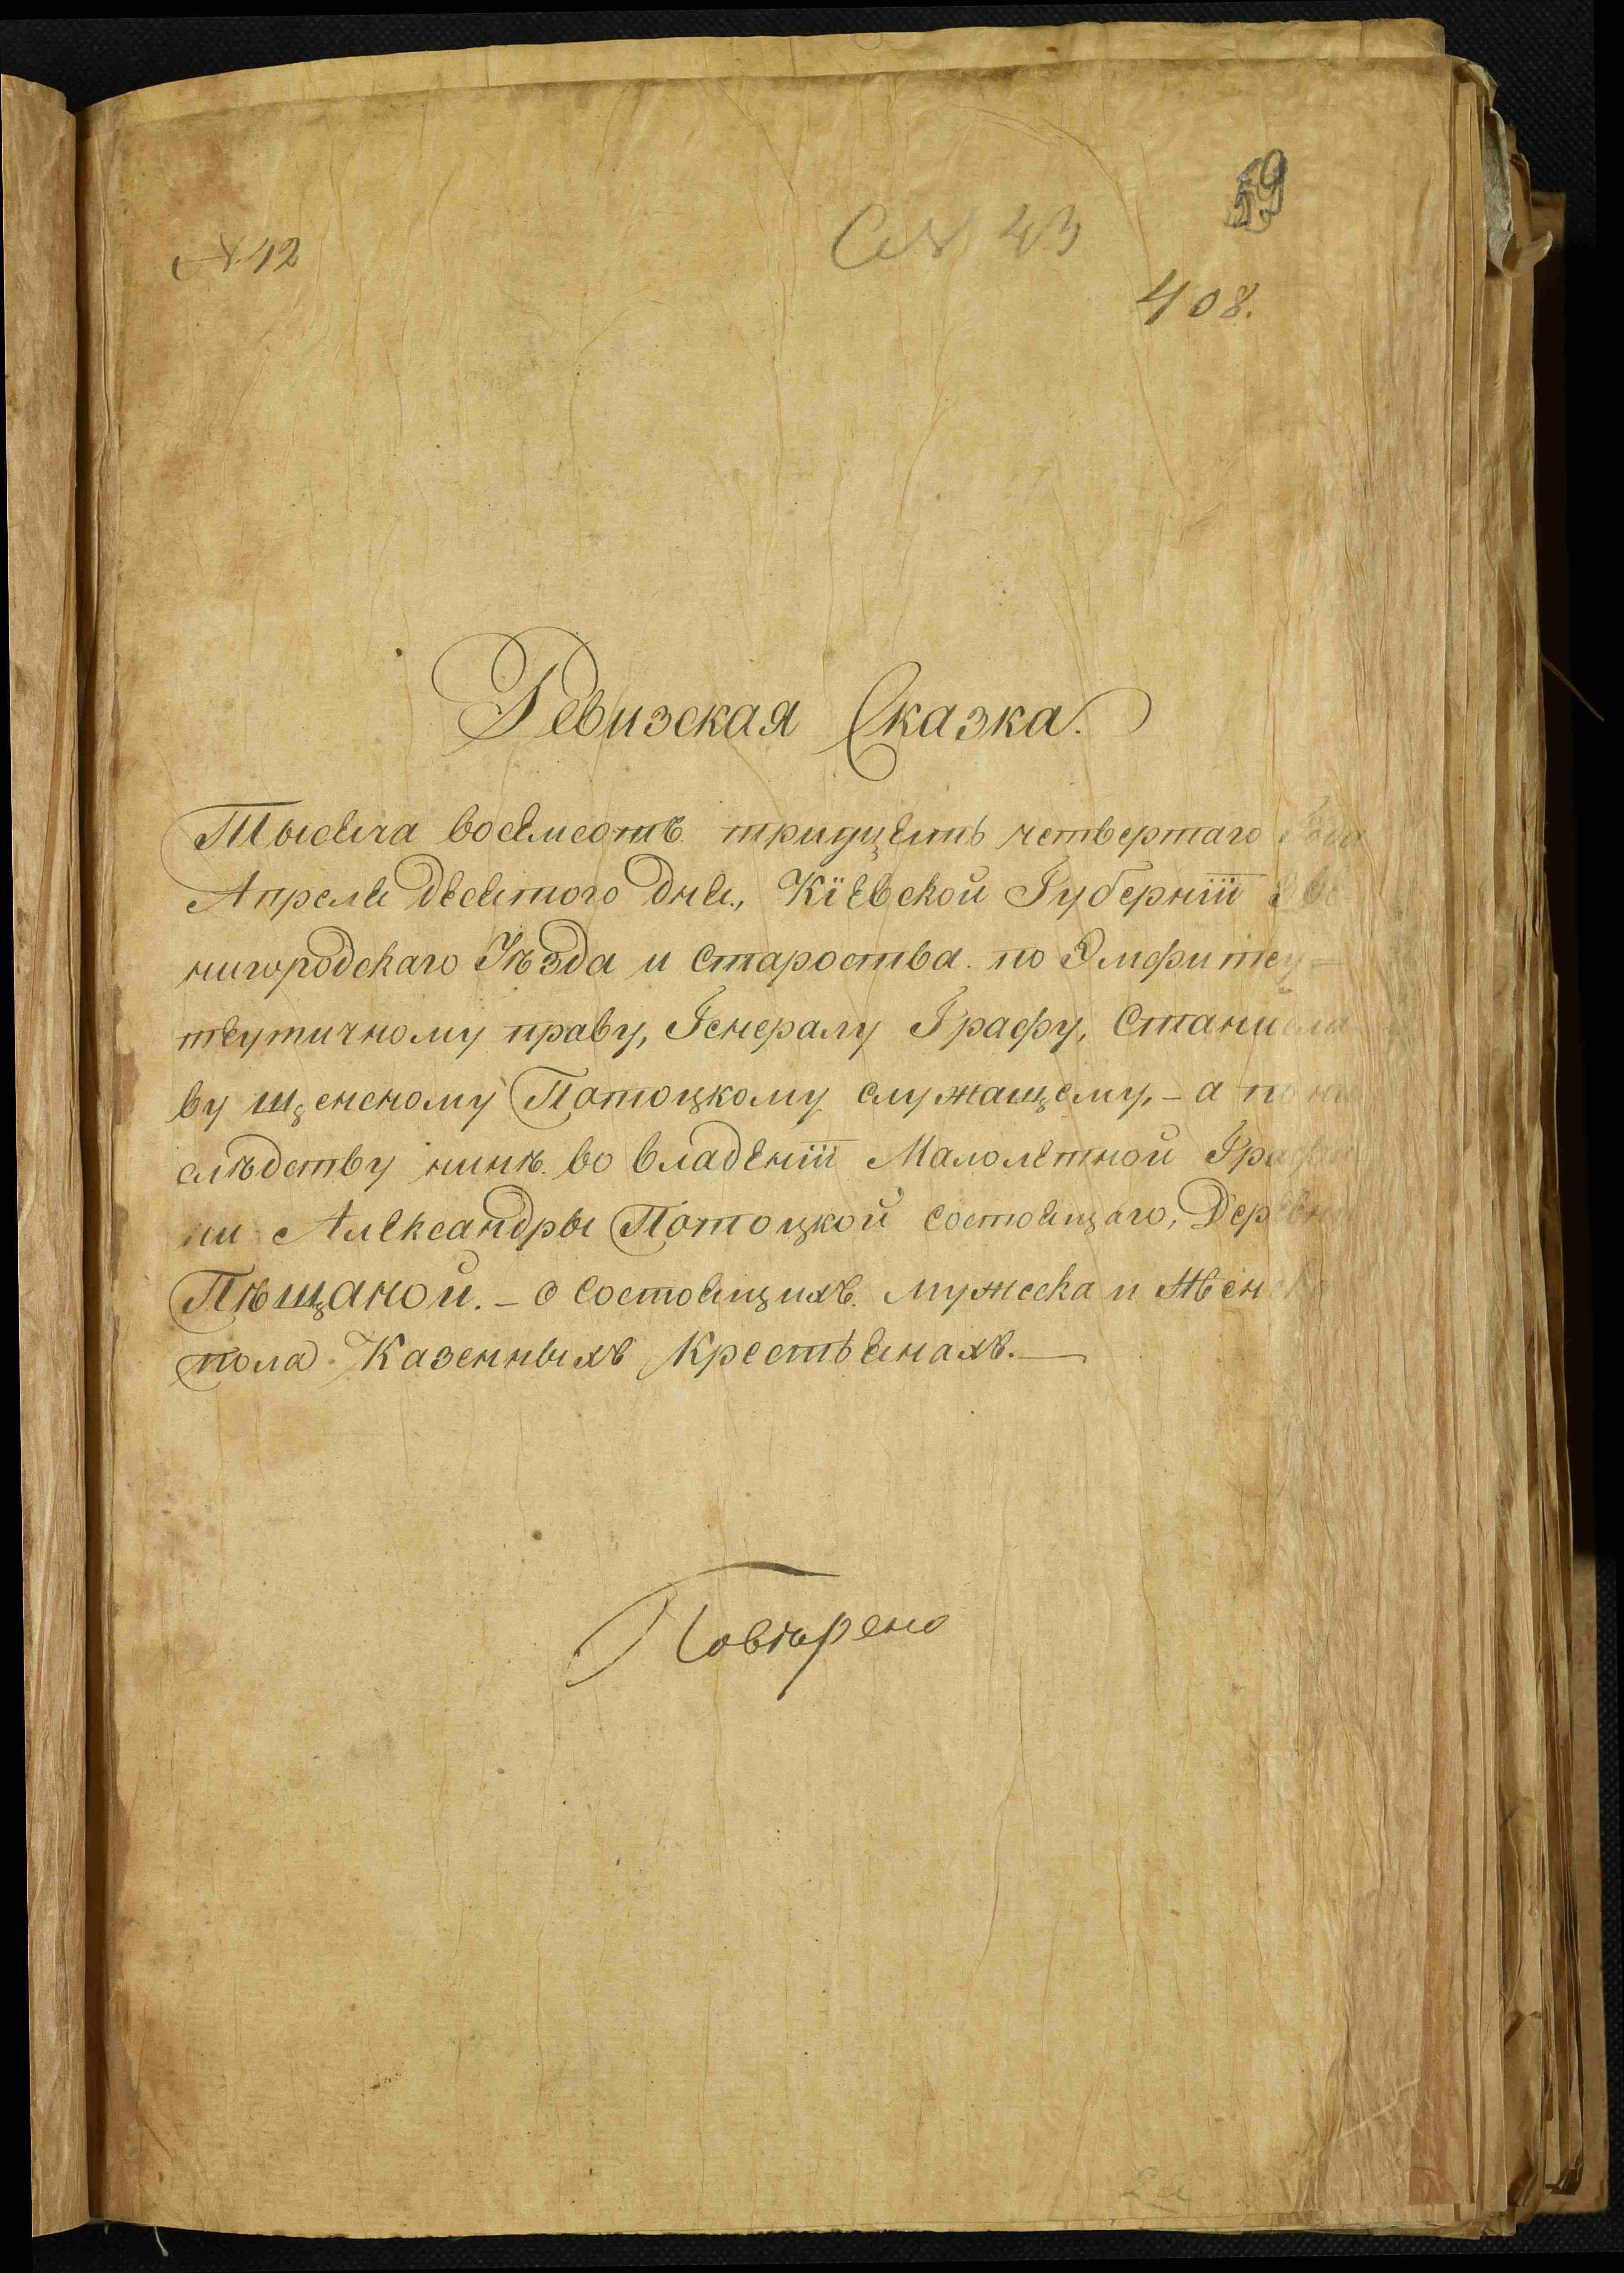 59
№ 12
408.
Ревизская Сказка.
Тысяча восемсотъ тридцять четвертаго Года
Апреля десятого дня, Кіевской Губерніи Зве-
нигородскаго Уѣзда и староства по Эмфитеу-
теутичному праву, Генералу Графу, Станисла-
ву щенсному Потоцкому служащему, - а по на
слѣдству нинѣ во владеніи Малолетной Графи
ни Александры Потоцкой состоящаго, Деревни
Пѣщаной. - о состоящихъ мужеска и женска
пола Казенныхъ Крестьянахъ. —
Повѣрено